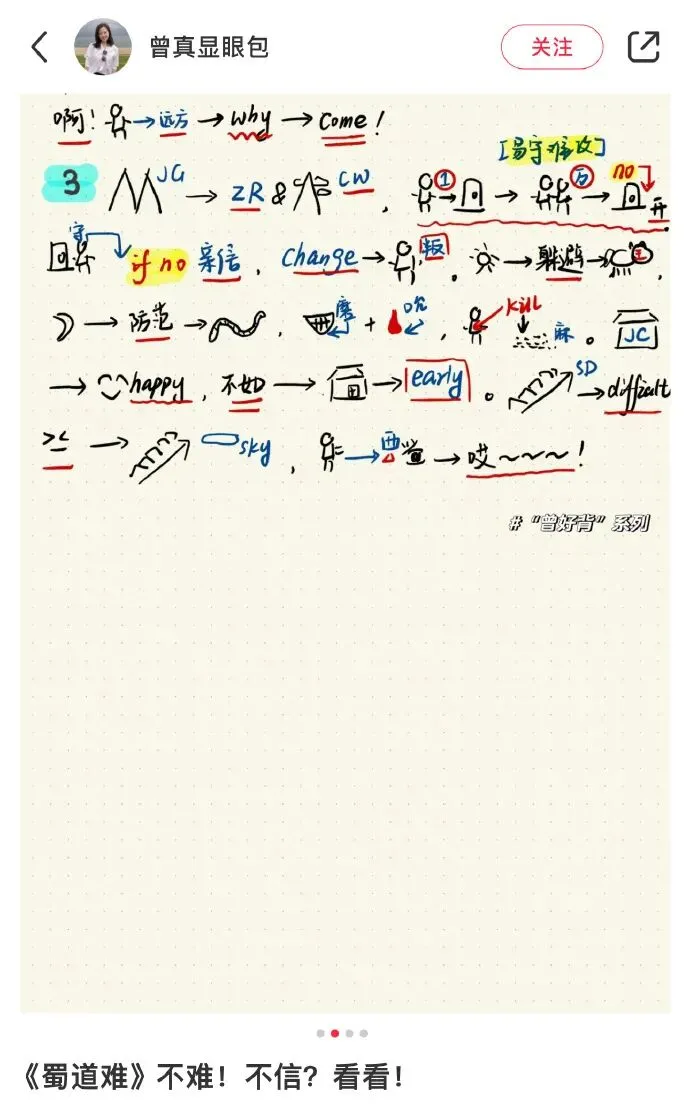 曾真显眼包 关注
啊! → 远方 → why → come!
[易守难攻]
3 JG → ZR & CW, 1 → → 万 → no 开
守 if no 亲信, change → 叛. → 躲避 → 王,
→ 防范 →, 磨 + 吮, kill 麻。 JC
→ happy, 不如 → → early。 SD → difficult
→ sky, → 西 → 哎~~~!
#“曾好背”系列
《蜀道难》不难!不信?看看!